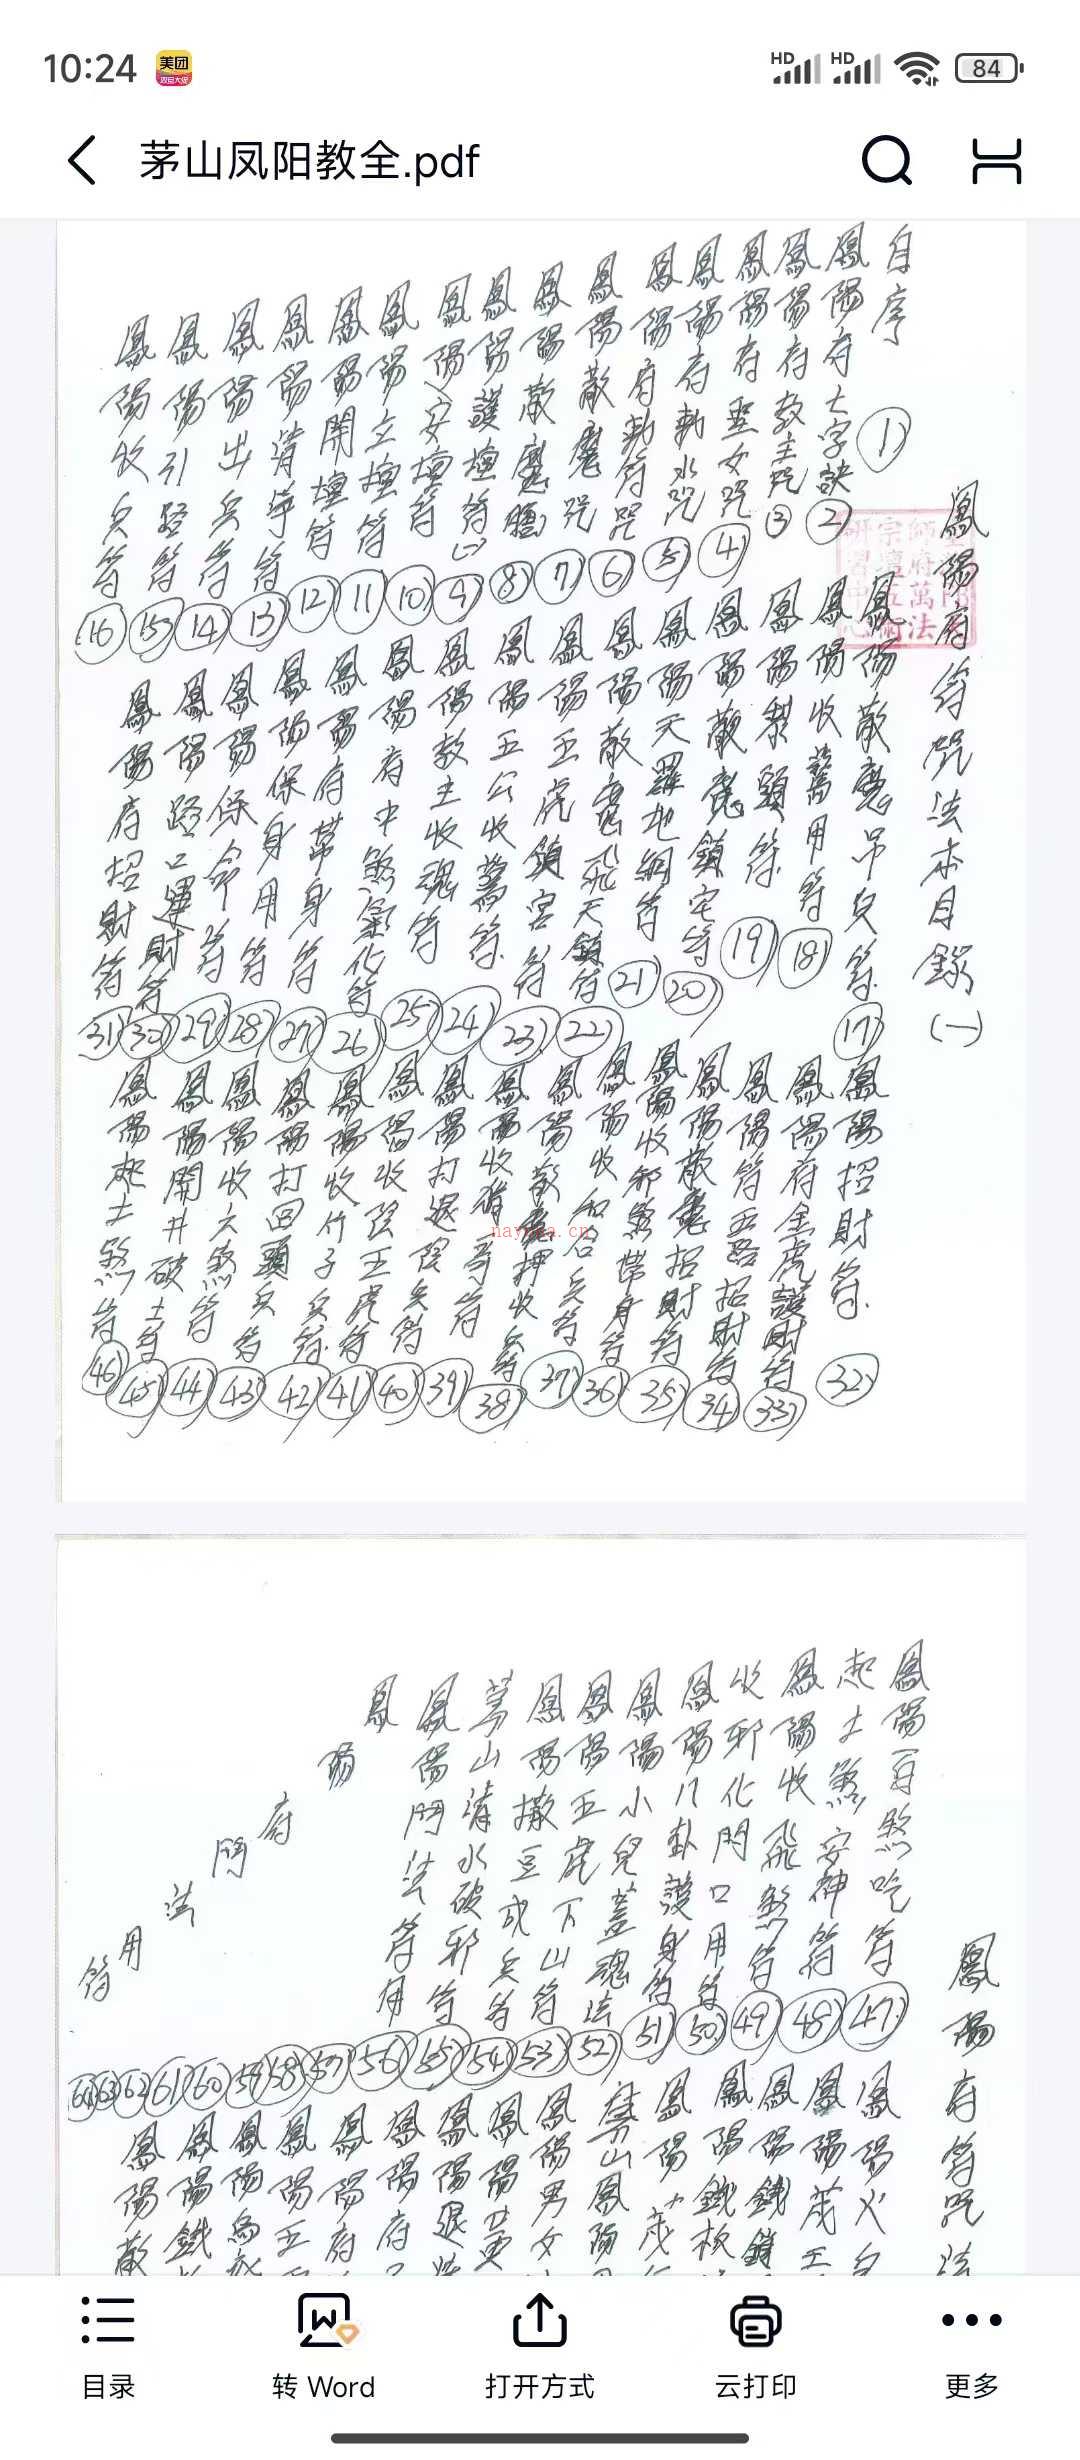 10:24
美团
HD
HD
84
茅山凤阳教全.pdf
鳳陽府符咒法本目錄(一)
自序 1
鳳陽府七字訣 2
鳳陽府教主咒 3
鳳陽府聖女咒 4
鳳陽府勅水咒 5
鳳陽府勅符咒 6
鳳陽散魔咒 7
鳳陽散魔 8
鳳陽護壇符(二) 9
鳳陽安壇符 10
鳳陽立壇符 11
鳳陽開壇符 12
鳳陽清淨符 13
鳳陽出兵符 14
鳳陽引路符 15
鳳陽收兵符 16
鳳陽散魔吊兵符 17
鳳陽收驚用符 18
鳳陽犁頭符 19
鳳陽散魔鎮宅符 20
鳳陽天羅地網符 21
鳳陽散魔飛天鎮符 22
鳳陽五虎鎮宮符 23
鳳陽五公收驚符 24
鳳陽教主收魂符 25
鳳陽府中煞氣化符 26
鳳陽府帶身符 27
鳳陽保身用符 28
鳳陽保命符 29
鳳陽路口運財符 30
鳳陽府招財符 31
鳳陽招財符 32
鳳陽府金虎護財符 33
鳳陽符五路招財符 34
鳳陽散魔招財符 35
鳳陽收邪煞帶身符 36
鳳陽收和合兵符 37
鳳陽散魔押收兵符 38
鳳陽收猖哥符 39
鳳陽打退陰兵符 40
鳳陽收陰五虎符 41
鳳陽收竹子兵符 42
鳳陽打回頭兵符 43
鳳陽收六煞符 44
鳳陽開井破土符 45
鳳陽起土煞符 46
nayona.cn
鳳陽府符咒法
鳳陽百煞吃符 47
起土煞安神符 48
鳳陽收飛煞符 49
收邪化門口用符 50
鳳陽八卦護身符 51
鳳陽小兒蓋魂法 52
鳳陽五虎下山符 53
鳳陽撒豆成兵符 54
茅山清水破邪符 55
鳳陽鬥法符用 56
鳳陽府鬥法用符
57
58
59
60
61
62
63
64
鳳陽火
鳳陽茂
鳳陽鐵鎖
鳳陽鐵板
鳳陽茂
茅山鳳陽
鳳陽男女
鳳陽
鳳陽退
鳳陽府
鳳陽府
鳳陽五
鳳陽
鳳陽鐵
鳳陽散
目录
转 Word
打开方式
云打印
更多